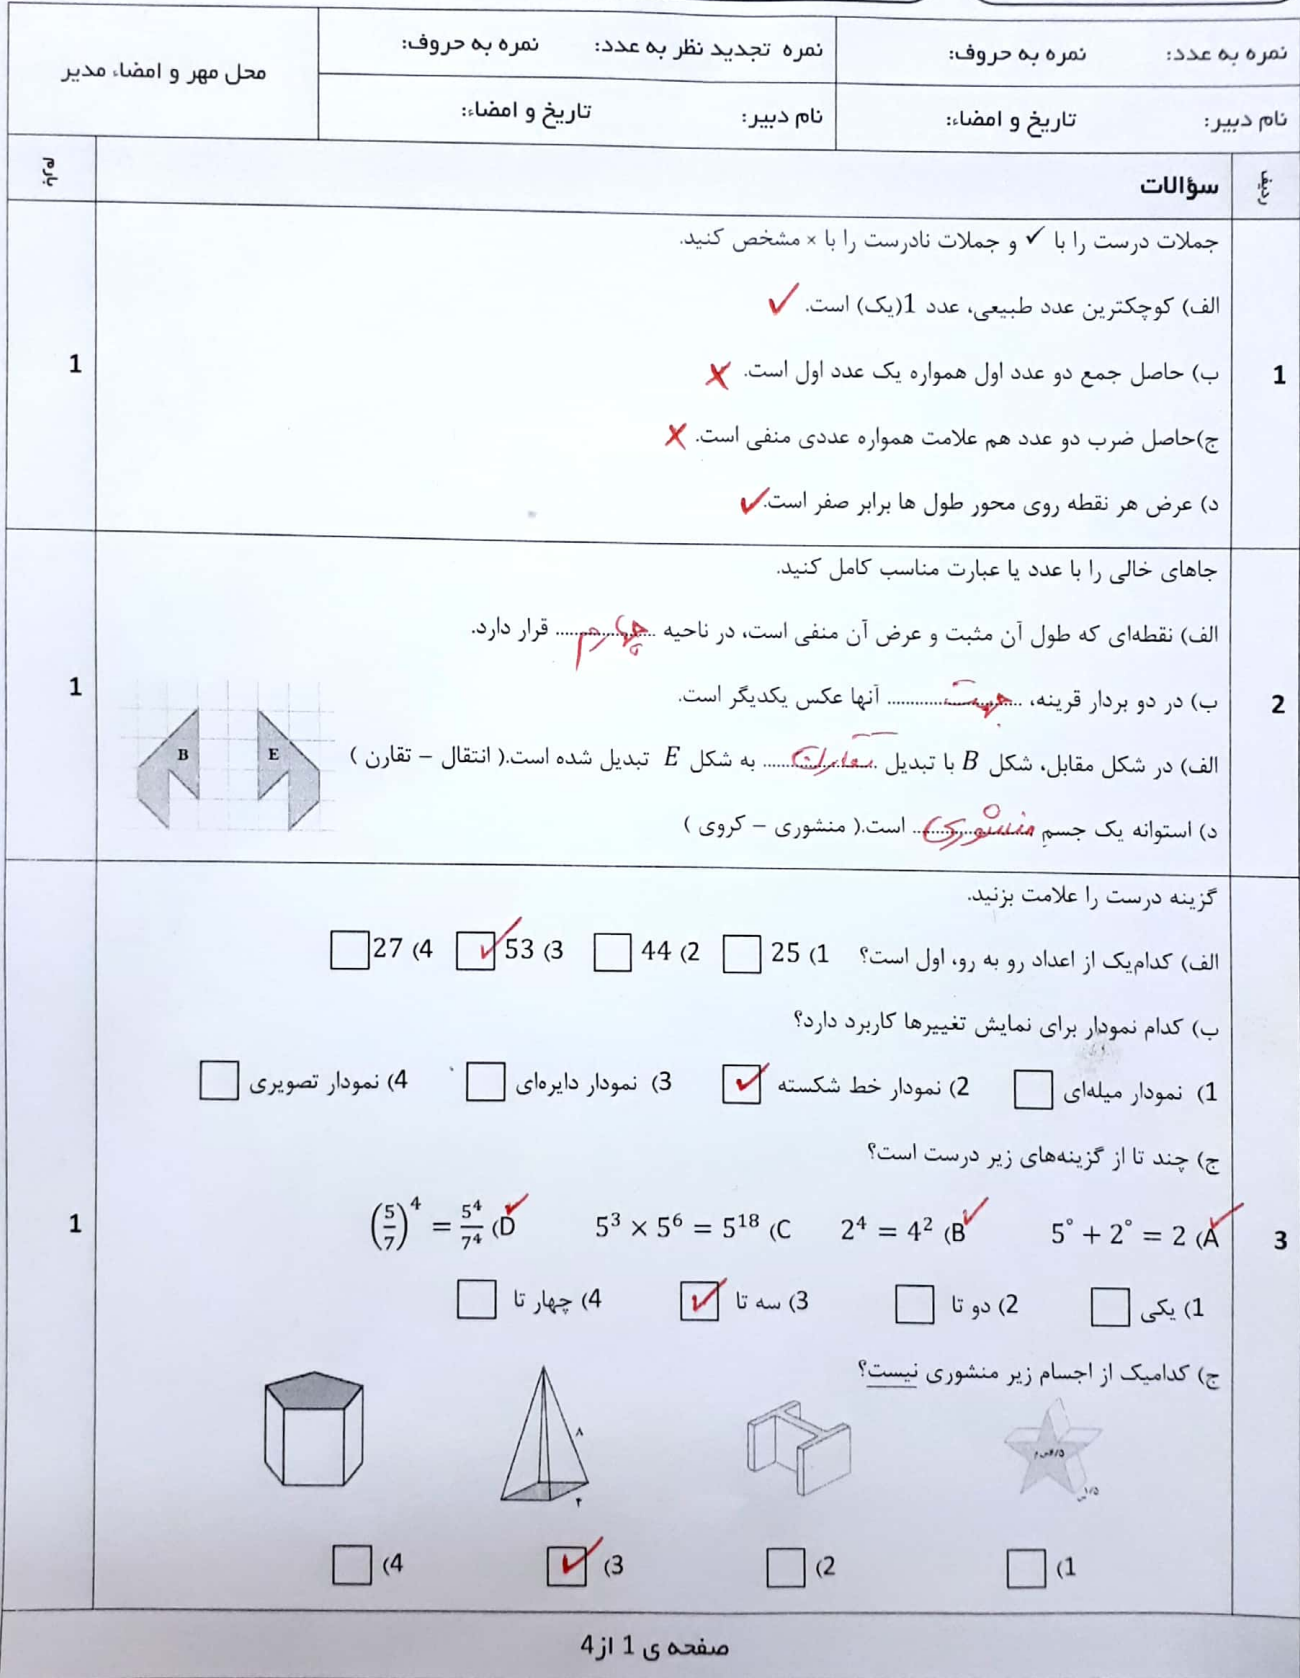 نمره به عدد: نمره به حروف: نمره تجدید نظر به عدد: نمره به حروف: محل مهر و امضاء مدیر
نام دبیر: تاریخ و امضاء: نام دبیر: تاریخ و امضاء:
ردیف سؤالات بارم
جملات درست را با ✓ و جملات نادرست را با × مشخص کنید.
الف) کوچکترین عدد طبیعی، عدد 1(یک) است. ✓
1 ب) حاصل جمع دو عدد اول همواره یک عدد اول است. × 1
ج)حاصل ضرب دو عدد هم علامت همواره عددی منفی است. ×
د) عرض هر نقطه روی محور طول ها برابر صفر است. ✓
جاهای خالی را با عدد یا عبارت مناسب کامل کنید.
الف) نقطه‌ای که طول آن مثبت و عرض آن منفی است، در ناحیه چهارم قرار دارد.
2 ب) در دو بردار قرینه، جهت آنها عکس یکدیگر است. 1
الف) در شکل مقابل، شکل B با تبدیل تقارن به شکل E تبدیل شده است.( انتقال – تقارن ) E B
د) استوانه یک جسم منشوری است.( منشوری – کروی )
گزینه درست را علامت بزنید.
الف) کدام‌یک از اعداد رو به رو، اول است؟ 1) 25 2) 44 3) 53 ✓ 4) 27
ب) کدام نمودار برای نمایش تغییرها کاربرد دارد؟
1) نمودار میله‌ای 2) نمودار خط شکسته ✓ 3) نمودار دایره‌ای 4) نمودار تصویری
ج) چند تا از گزینه‌های زیر درست است؟
3 A) 5° + 2° = 2 ✓ B) 2⁴ = 4² ✓ C) 5³ × 5⁶ = 5¹⁸ D) (5/7)⁴ = 5⁴/7⁴ ✓ 1
1) یکی 2) دو تا 3) سه تا ✓ 4) چهار تا
ج) کدامیک از اجسام زیر منشوری نیست؟
۸
۲
1) 2) 3) ✓ 4)
صفحه ی 1 از 4